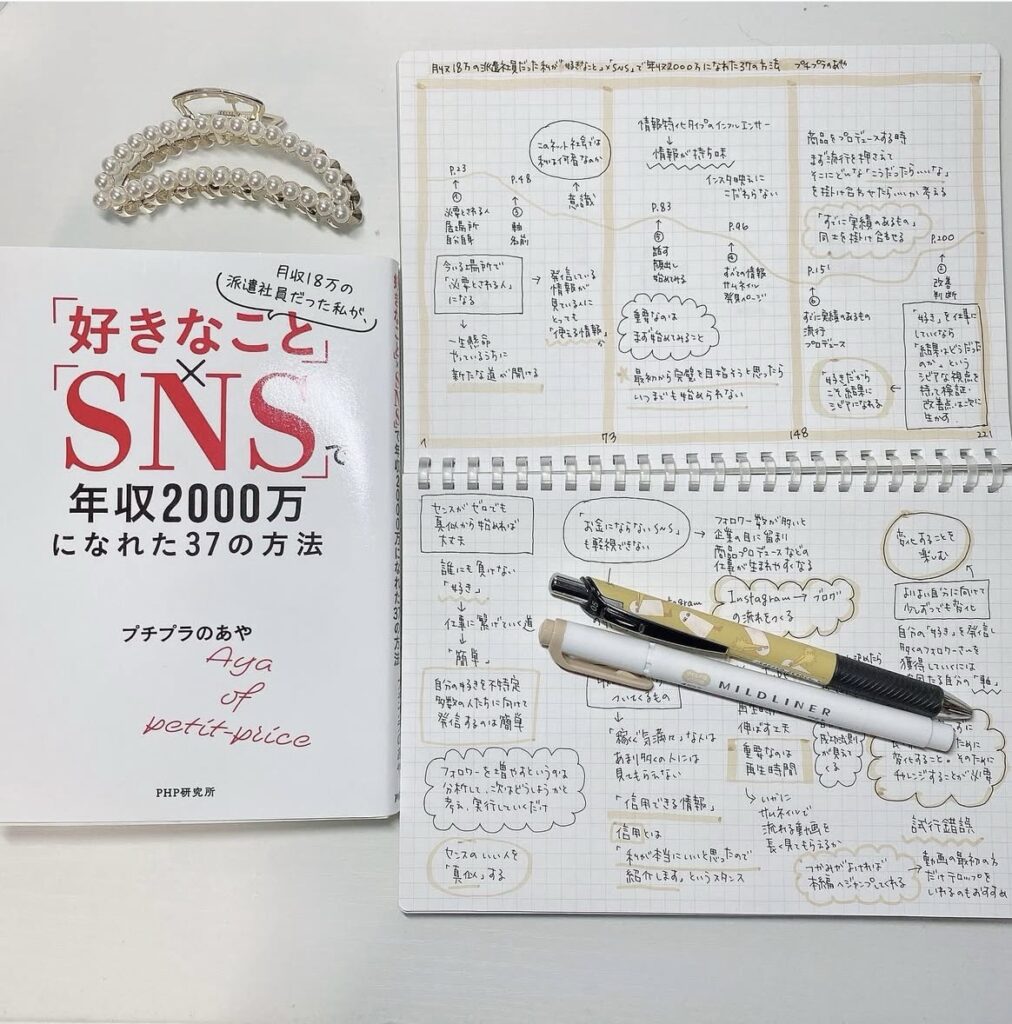 月収18万の
派遣社員だった私が、
「好きなこと」
×
「SNS」で
年収2000万
になれた37の方法
プチプラのあや
Aya
of
petit-price
PHP研究所
月収18万の派遣社員だった私が「好きなこと」×「SNS」で年収2000万になれた37の方法 プチプラのあや
P.23
①
必要とされる人
居場所
自分自身
P.48
②
軸
名前
このネット社会では
私は何者なのか
意識
今いる場所で
「必要とされる人」
になる
一生懸命
やっているうちに
新たな道が開ける
発信している
情報が
見ている人に
とっても
「使える情報」か
情報特化タイプのインフルエンサー
情報が持ち味
インスタ映えに
こだわらない
P.83
③
話す
顔出し
始めてみる
P.96
④
すべての情報
サムネイル
発見ページ
重要なのは
まず始めてみること
最初から完璧を目指そうと思ったら
いつまでも始められない
商品をプロデュースする時
まず流行を押さえて
そこにどんな「こうだったらいいな」
を掛け合わせたらいいか考える
「すでに実績のあるもの」
同士を掛け合わせる
P.151
すでに実績のあるもの
流行
プロデュース
P.200
改善
判断
「好き」を仕事に
していくなら
「結果はどうだった
のか」という
シビアな視点を
持って検証・
改善点は次に
生かす
「好きだから
こそ結果に
シビアになれる
1
73
148
221
センスがゼロでも
真似から始めれば
大丈夫
誰にも負けない
「好き」
仕事に繋げていく道
「簡単」
自分の好きを不特定
多数の人たちに向けて
発信するのは簡単
フォロワーを増やすというのは
分析して、次はどうしようかと
考え、実行していくだけ
センスのいい人を
「真似」する
「お金にならないSNS」
も軽視できない
フォロワー数が多いと
企業の目に留まり
商品プロデュースなどの
仕事が生まれやすくなる
Instagram→ブログ
の流れをつくる
ついてくるもの
「稼ぐ気満々」な人は
あまり多くの人には
見てもらえない
「信用できる情報」
信用とは
「私が本当にいいと思ったので
紹介します」というスタンス
伸ばす工夫
重要なのは
再生時間
いかに
サムネイルで
流れる動画を
長く見てもらえるか
成功法則
が見えて
くる
つかみがよければ
本編へジャンプしてくれる
動画の最初の方
だけテロップを
いれるのもおすすめ
変化することを
楽しむ
よりよい自分に向けて
少しずつでも変化
自分の「好き」を発信し
多くのフォロワーさんを
獲得していくには
自分の「軸」
変化すること。そのために
チャレンジすることが必要
試行錯誤
MILDLINER